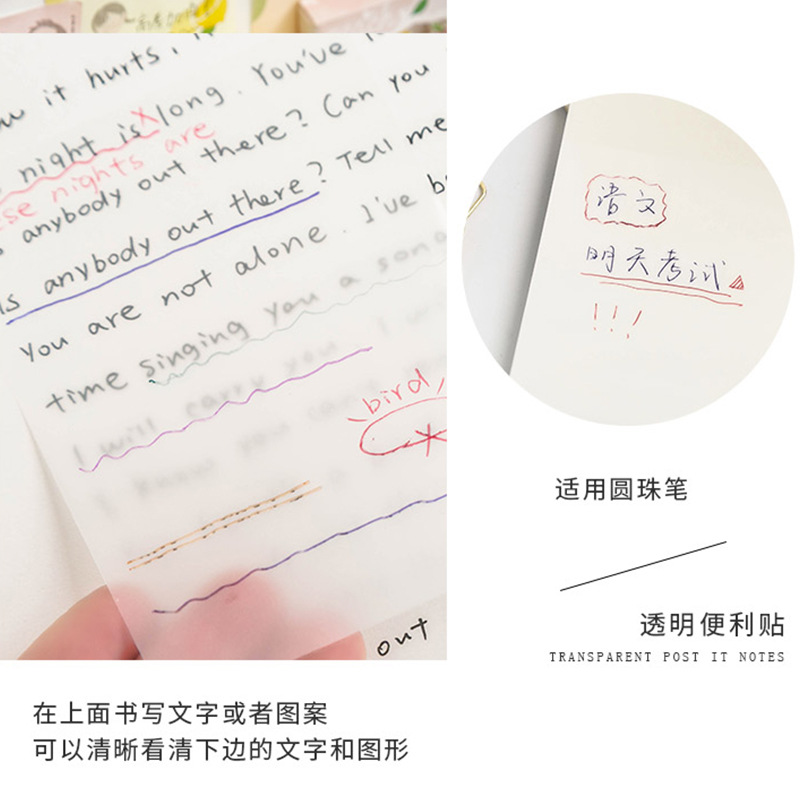 it hurts,
long. You've
night is
these nights are
anybody out there? Can you
Is anybody out there? Tell me
You are not alone. I've
time singing you a song
I will carry you,
I know you can't
bird
out
语文
明天考试
!!!
适用圆珠笔
透明便利贴
TRANSPARENT POST IT NOTES
在上面书写文字或者图案
可以清晰看清下边的文字和图形